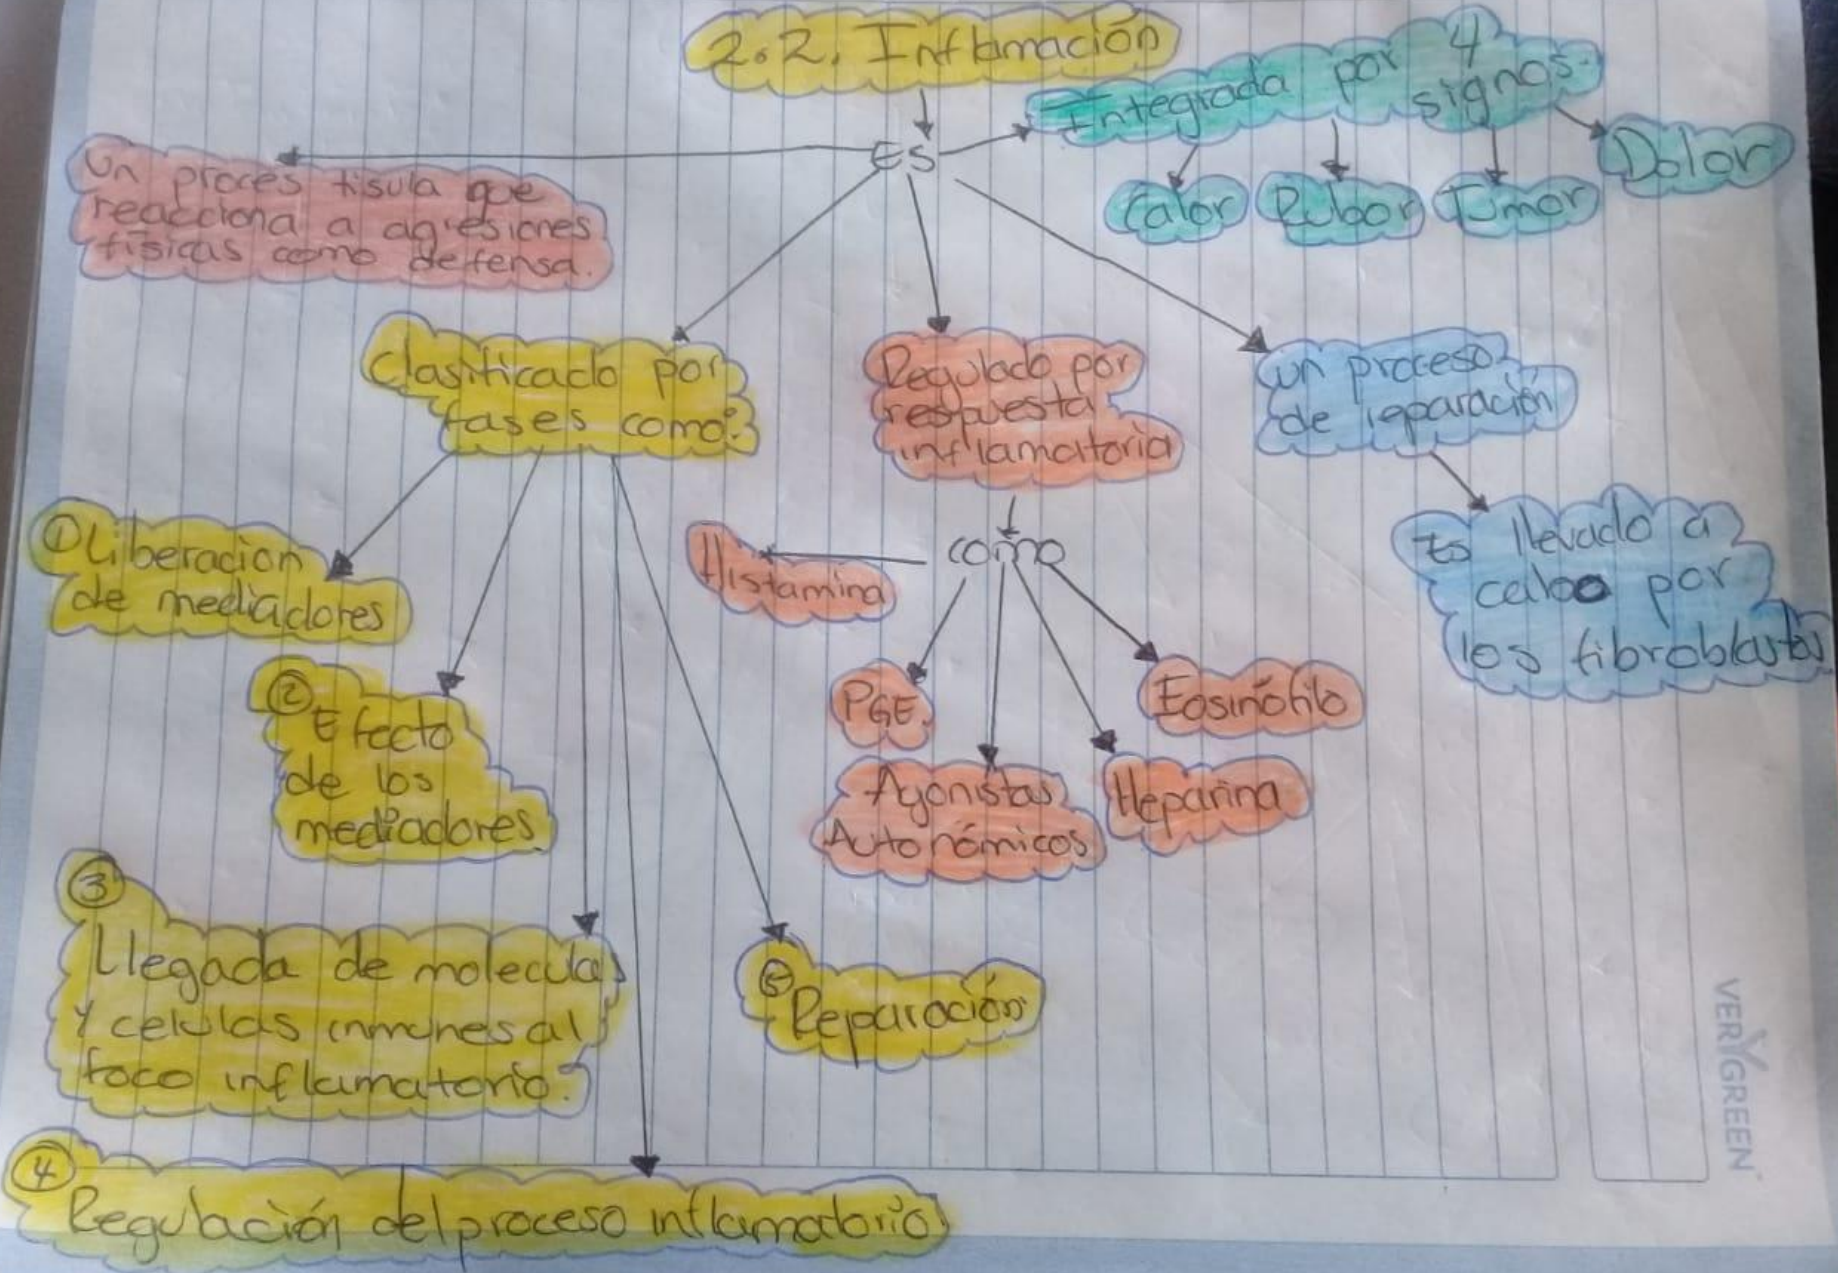 2.2. Inflamación
ES
Integrada por 4
signos.
Calor
Rubor
Tumor
Dolor
Un proces tisula que
reacciona a agresiones
físicas como defensa.
Clasificado por
fases como:
① Liberacion
de mediadores
②
Efecto
de los
mediadores
③
Llegada de moleculas
Y celulas inmunes al
foco inflamatorio.
④
Regulación del proceso inflamatorio
⑤
Reparación
Regulado por
respuesta
inflamatoria
como
Histamina
PGE.
Agonistas
Autonómicos
Heparina
Eosinófilo
un proceso
de reparación
Es llevado a
cabo por
los fibroblastos
VERYGREEN